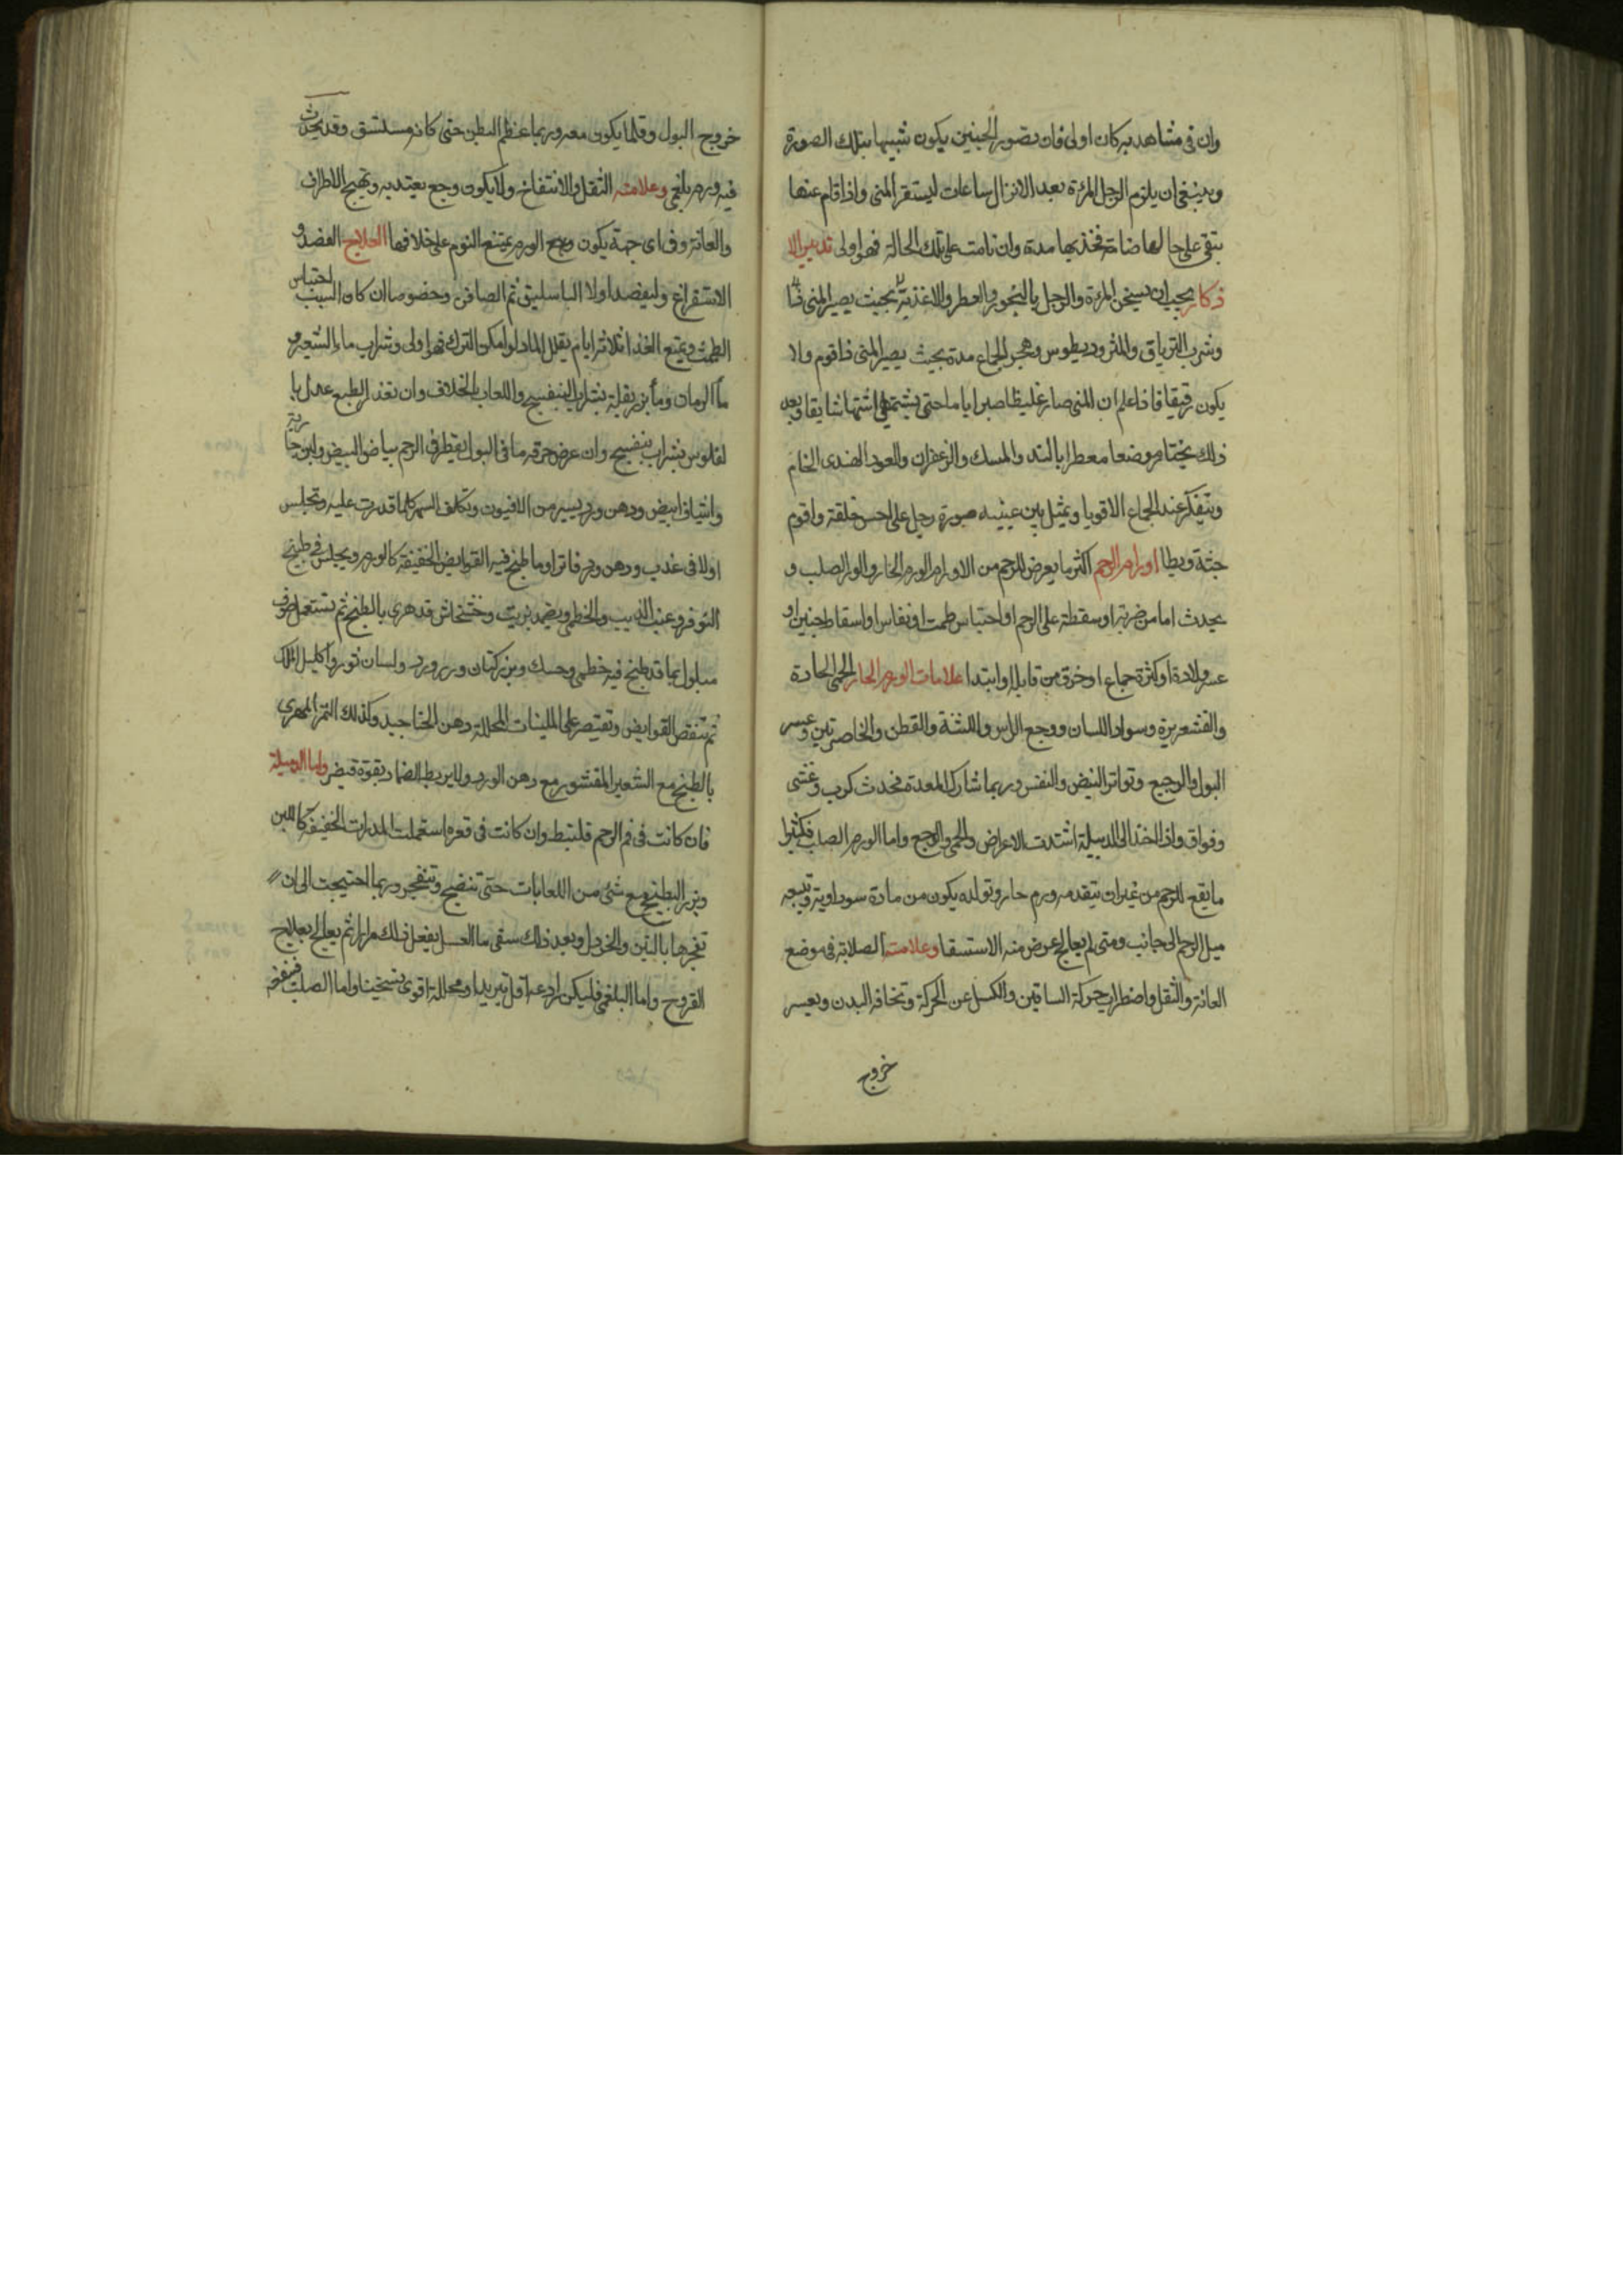 وان فى مشاهد بركان اولى فان تصور الجنين يكون شبيها بتلك الصورة
وينبغى ان يلزم الرجل المرءة بعد الانزال ساعات ليستقر المنى واذا قام عنها
تبقى على حالها ضامة فخذيها مدة وان نامت على تلك الحالة فهو اولى تدبير الا
ذكار يجب ان يسخن المرءة والرجل بالبخور والعطر والاغذية بحيث يصير المنى
وشرب الترياق والمثروديطوس وهجر الجماع مدة بحيث يصير المنى ذا قوم ولا
يكون رقيقا فاذا علم ان المنى صار غليظا صبر اياما حتى يشتهى اشتها شايقا وبعد
ذلك يختار موضعا معطرا بالند والمسك والزعفران والعود الهندى الخام
ويتفكر عند الجماع الاقويا ويمثل بين عينيه صورة رجل على احسن خلقة واقوم
جثة ويطا اورام الرحم اكثر ما يعرض للرحم من الاورام الورم الحار والورم الصلب و
يحدث اما من ضربة او سقطة على الرحم او احتباس طمث او نفاس او اسقاط جنين او
عسر ولادة او كثرة جماع او خرق من قابلة او ابتدا علامات الورم الحار الحمى الحادة
والقشعريرة وسواد اللسان ووجع الراس واللثة والقطن والخاصرتين وعسر
البول والوجيع وتواتر النبض والنفس وربما شارك المعدة فحدث كرب وغشى
وفواق واذا اخذ الى الدبيلة اشتدت الاعراض والحمى والوجع واما الورم الصلب فكثيرا
ما يقع للرحم من غير ان يتقدمه ورم حار وتولده يكون من مادة سوداوية ويتبعه
ميل الرحم الى جانب ومتى لم يعالج عرض منه الاستسقا وعلامته الصلابة فى موضع
العانة والثقل واضطراب حركة الساقين والكسل عن الحركة ونحافة البدن ويعسر
خروج
خروج البول وقلما يكون معه وربما عظم البطن حتى كانه مستسق وقد يحدث
فيه ورم بلغمى وعلامته الثقل والانتفاخ ولا يكون وجع يعتد به وتهيج الاطراف
والعانة وفى اى جهة يكون وجع الورم يمتنع النوم على خلافها العلاج الفصد و
الاستفراغ وليفصد اولا الباسليق ثم الصافن وخصوصا ان كان السبب احتباس
الطمث ويمنع الغذا ثلاثة ايام يقلل الما بل لو امكن الترك فهو اولى وشراب ماء الشعير و
ما الرمان وما بزر بقلة بشراب البنفسج واللعاب بالخلاف وان تعذر الطبع عدل با
لفلوس بشراب بنفسج وان عرض حرقه ما فى البول يقطر فى الرحم بياض البيض ولبن جارية
واشياف ابيض ودهن ورد يسير من الافيون وتكلف السهر كلما قدرت عليه وتجلس
اولا فى عذب ودهن ورد فاتر او ما طبخ فيه القوابض الخفيفة كالورد ويجلس فى طبيخ
النوفر وعنب الذيب والخطمى ويضمد بزيت وخشخاش قد هرى بالطبخ ثم يستعمل صوف
مبلول بما قد طبخ فيه خطمى وحسك وبزر كتان وورد ولسان ثور واكليل الملك
ثم تنقص القوابض وتقتصر على الملينات المحللة دهن الحناجيد وكذلك التمر المهرى
بالطبخ مع الشعير المقشور مع دهن الورد ولا يربط الضماد بقوة قبض واما الدبيلة
فان كانت فى فم الرحم فلتبط وان كانت فى قعره استعملت المدرات الخفيفة كاللبن
وبزر البطيخ مع شئ من اللعابات حتى تنضج وتنفجر وربما احتيجت الى ان
تفجرها بالتين والخردل وبعد ذلك سقى ما العسل يفعل ذلك مرارا ثم يعالج بعلاج
القروح واما البلغمى فليكن رادعه اقل تبريدا ومحللة اقوى تسخينا واما الصلب